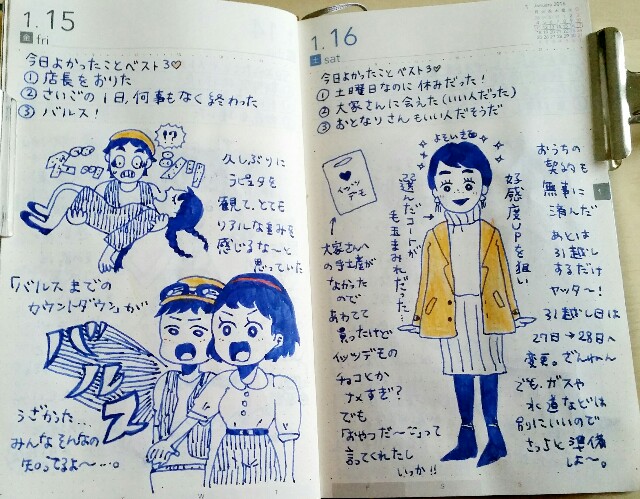 1.15
金 fri
今日よかったことベスト3♡
① 店長をおりた
② さいごの1日、何事もなく終わった
③ バルス!
!?
久しぶりに
ラピュタを
観て、とても
リアルな重みを
感じるな〜と
思っていた
「バルスまでの
カウントダウン」が
バルス
うざかった…
みんなそんなの
知ってるよ〜…。
1.16
土 sat
January 2016
今日よかったことベスト3♡
① 土曜日なのに休みだった!
② 大家さんに会えた(いい人だった)
③ おとなりさんもいい人だそうだ
よそいき
イッツデモ
選んだコートが
毛玉まみれだった…
好感度UPを狙い
大家さんへ
の手土産が
なかった
ので
あわてて
買ったけど
イッツデモの
チョコとか
ナメすぎ?
でも
「おやつだ〜」って
言ってくれたし
いっか!!
おうちの
契約も
無事に
済んだ
あとは
引越し
するだけ
ヤッター!
引越し日は
27日→28日へ
変更。ざんねん
でも、ガスや
水道などは
別にいいので
さっさと準備
しよ〜。